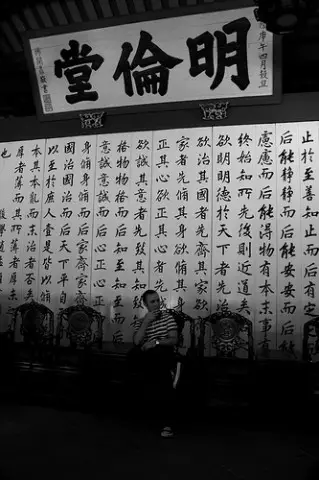 明倫堂
庚午四月穀旦
止於至善知止而后有
后能靜靜而后能安安而后
慮慮而后能得物有本末事有
終始知所先後則近道矣
欲明明德於天下者先治
欲治其國者先齊其家欲
家者先脩其身欲脩其身
正其心欲正其心者先
欲誠其意者先致其知
格物物格而后知至知至而后
意誠意誠而后心正
身脩身脩而后家齊家齊而后
國治國治而后天下平自
以至於庶人壹是皆以脩
本其本亂而末治者否矣
厚者薄而其所薄者厚未
也